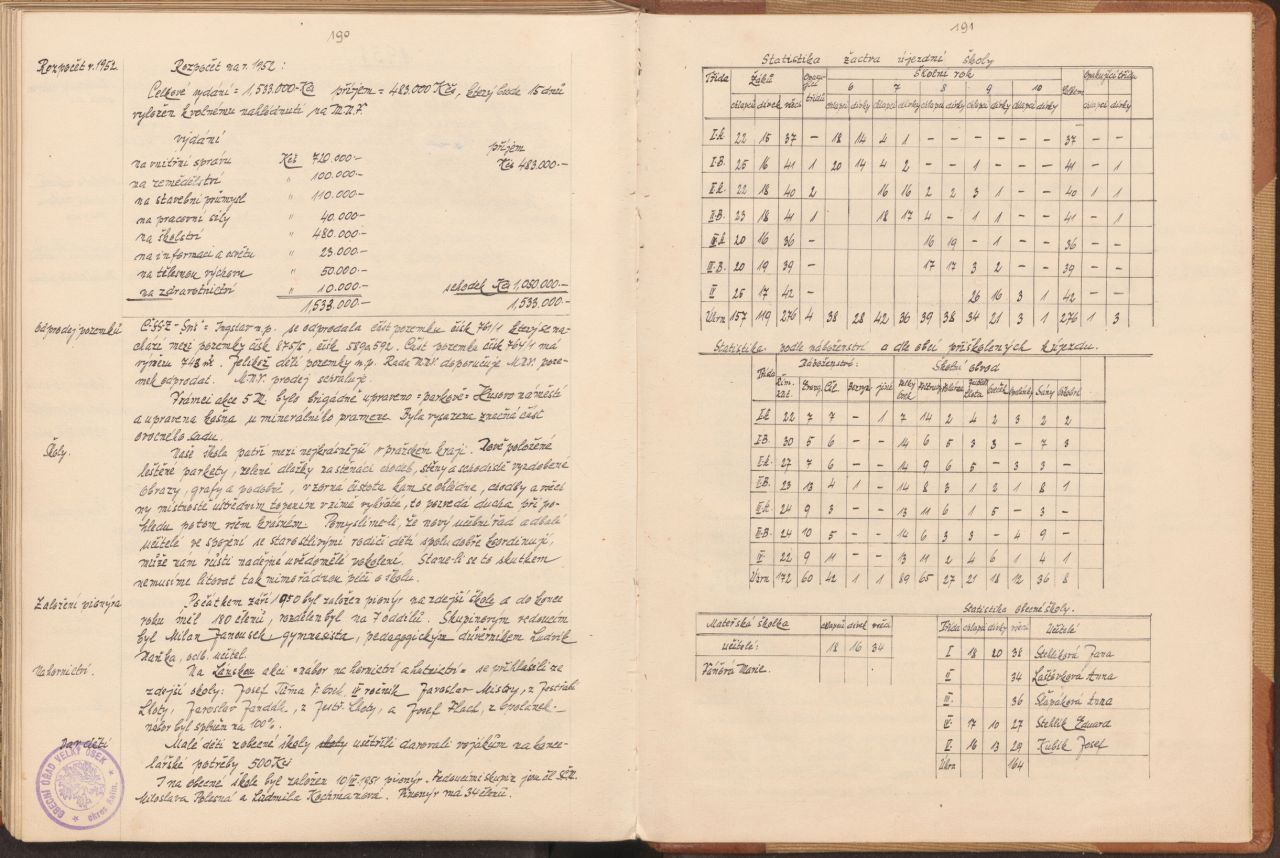 190
Rozpočet r. 1952.
Rozpočet na r. 1952:
Celkové vydání = 1,533.000-Kčs příjem = 483.000 Kčs, který bude 15 dnů
vyložen k volnému nahlédnutí na M.N.V.
vydání
příjem
na vnitřní správu Kčs 720.000- Kčs 483.000-
na zemědělství " 100.000-
na stavební průmysl " 110.000-
na pracovní síly " 40.000-
na školství " 480.000-
na informaci a osvětu " 23.000-
na tělesnou výchovu " 50.000-
na zdravotnictví " 10.000- schodek Kčs 1,050.000-
1,533.000- 1,533.000-
Odprodej pozemků
se odprodala část pozemku čísk 761/1 který se na-
chází mezi pozemky čísk 875/5, čísk 589 a 591. Část pozemku čísk 761/1 má
výměru 748 m². Jelikož dělí pozemky n.p. Rada MNV. doporučuje M.N.V. poze-
mek odprodat. M.N.V. prodej schvaluje.
V rámci akce 5 M. bylo brigádně upraveno "parkově" Husovo náměstí
a upravena kašna u minerálného pramene. Byla vysazena značná část
ovocného sadu.
Školy.
Naše škola patří mezi nejkrásnější v pražském kraji. Nově položené
leštěné parkety, zelené dlažky na stěnách chodeb, stěny a schodiště vyzdobené
obrazy, grafy a podobně, vzorná čistota kam se ohlédne, chodby a všech
ny místnosti ústředním topením v zimě vyhřáté, to pozvedá ducha při po-
hledu po tom všem krásném. Pomyslíme-li, že nový učební řád a dbalí
učitelé ve spojení se starostlivými rodiči dětí spolu dobře koordinují,
může nám růsti nadějné uvědomělé pokolení. Stane-li se to skutkem
nemusíme litovat tak mimořádnou péči o školu.
Založení pionýra
Počátkem září 1950 byl založen pionýr na zdejší škole a do konce
roku měl 180 členů, rozdělen byl na 7 oddílů. Skupinovým vedoucím
byl Milan Janoušek gymnasista, pedagogickým důvěrníkem Ludvík
Vaňka, odb. učitel.
Nábor hornictví.
Na Lánskou akci "nábor na hornictví a hutnictví" se přihlásili ze
zdejší školy: Josef Tůma IV ročník Jaroslav Mistry, z Jestřabí
Lhoty, Jaroslav Jandák, z Jestř. Lhoty, a Josef Flach, z Volárek-
nábor byl splněn na 100%.
Dar dětí
Malé děti z obecné školy ušetřili darovali vojákům na kance-
lářské potřeby 500 Kčs
I na obecné škole byl založen 10/IV-1951 pionýr. Vedoucími skupin jsou čl. SČM.
Miloslava Polesná a Ludmila Kochmanová. Pionýr má 34 členů.
OBECNÍ ÚŘAD VELKÝ OSEK
okres Kolín
191
Statistika žactva újezdní školy
Třída Žáků Školní rok Opakující třídu
6 7 8 9 10 Celkem
chlapců dívek všech chlapci dívky chlapci dívky chlapci dívky chlapci dívky chlapci dívky chlapci dívky
I.A 22 15 37 - 18 14 4 1 - - - - - - 37 - -
I.B. 25 16 41 1 20 14 4 2 - - 1 - - - 41 - 1
II.A. 22 18 40 2 16 16 2 2 3 1 - - 40 1 1
II.B. 23 18 41 1 18 17 4 - 1 1 - - 41 - 1
III.A 20 16 36 - 16 19 - 1 - - 36 - -
III.B. 20 19 39 - 17 17 3 2 - - 39 - -
IV 25 17 42 - 26 16 3 1 42 - -
Úhrn 157 119 276 4 38 28 42 36 39 38 34 21 3 1 276 1 3
Statistika podle náboženství a dle obcí přiškolených k újezdu.
Náboženství: Školní obvod
Třída Řím. kat. Evang. Čč. Bezvyz. jiné Velký Osek
I.A 22 7 7 - 1 7 14 2 4 2 3 2 2
I.B. 30 5 6 - - 14 6 5 3 3 - 7 3
II.A. 27 7 6 - - 14 9 6 5 - 3 3 -
II.B. 23 13 4 1 - 14 8 3 1 2 1 8 1
III.A 24 9 3 - - 13 11 6 1 5 - 3 -
III.B. 24 10 5 - - 14 6 3 3 - 4 9 -
IV. 22 9 11 - - 13 11 2 4 6 1 4 1
Úhrn 172 60 42 1 1 89 65 27 21 18 12 36 8
Statistika obecné školy.
Mateřská školka chlapců dívek všech
učitelé: 18 16 34
Váňová Marie.
Třída chlapci dívky všech Učitelé
I 18 20 38 Stehlíková Jana
II 34 Laštůvková Anna
III. 36 Slapáková Anna
IV. 17 10 27 Stehlík Eduard
V. 16 13 29 Kubík Josef
Úhrn 164